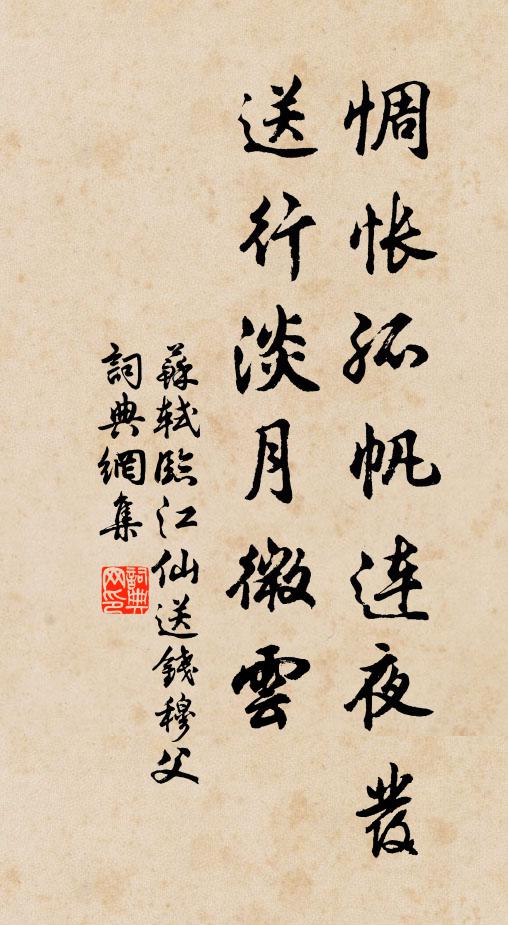 惆悵孤帆連夜發
送行淡月微雲
蘇軾臨江仙送錢穆父
詞典網集
詞典网印